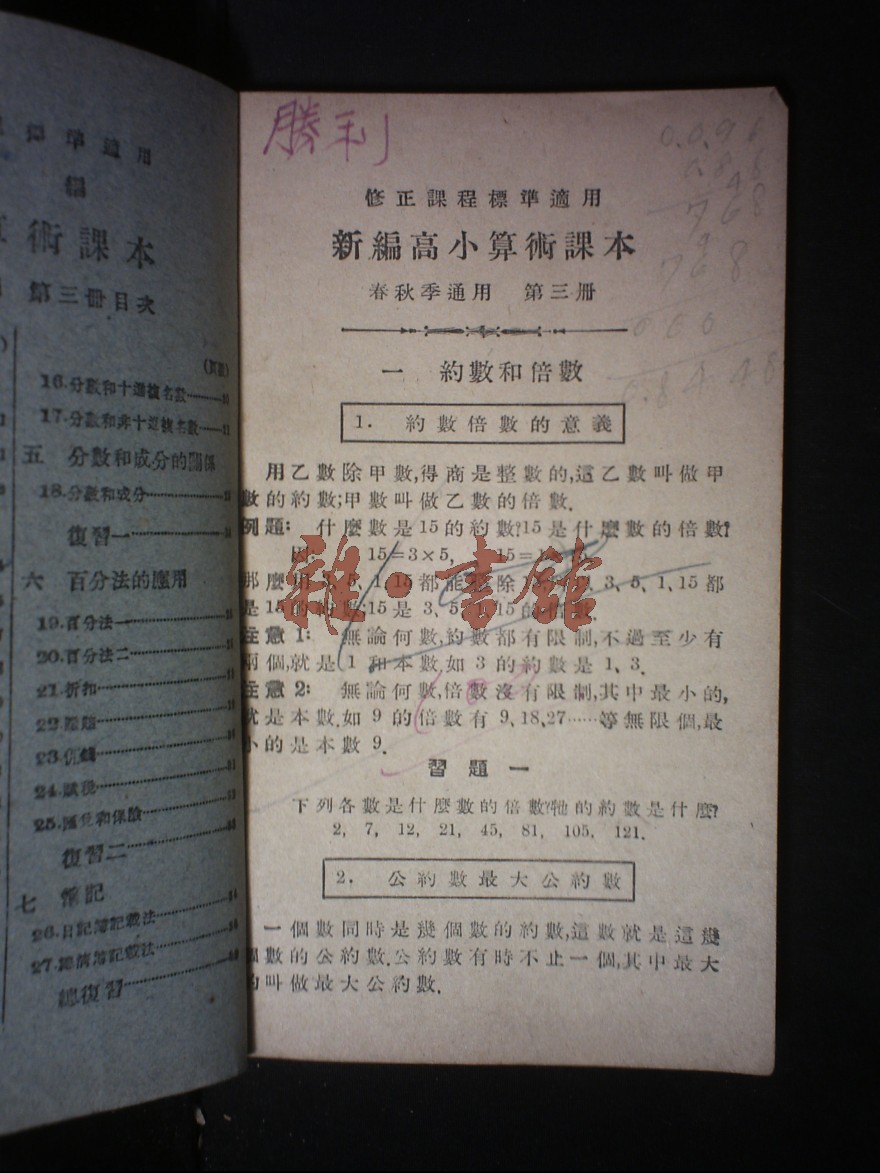 準適用
編
術課本
第三冊目次
16.分數和十進複名數
17.分數和非十進複名數
五 分數和成分的關係
18.分數和成分
復習一
六 百分法的應用
19.百分法一
20.百分法二
21.折扣
22.賺賠
23.佣錢
24.賦稅
25.匯兌和保險
復習二
七 簿記
26.日記簿記載法
27.總清簿記載法
總復習
勝利
修正課程標準適用
新編高小算術課本
春秋季通用 第三冊
一 約數和倍數
1. 約數倍數的意義
用乙數除甲數,得商是整數的,這乙數叫做甲
數的約數;甲數叫做乙數的倍數.
例題: 什麼數是15的約數?15是什麼數的倍數?
15=3×5, 15=1×15.
那麼用3、5、1、15都能 除 3、5、1、15都
是15的約數;15是3、5、1、15的倍數.
注意1: 無論何數,約數都有限制,不過至少有
兩個,就是1和本數.如3的約數是1、3.
注意2: 無論何數,倍數沒有限制,其中最小的,
就是本數.如9的倍數有9、18、27……等無限個,最
小的是本數9.
習題一
下列各數是什麼數的倍數?牠的約數是什麼?
2, 7, 12, 21, 45, 81, 105, 121.
2. 公約數最大公約數
一個數同時是幾個數的約數,這數就是這幾
個數的公約數.公約數有時不止一個,其中最大
的叫做最大公約數.
雜·書館